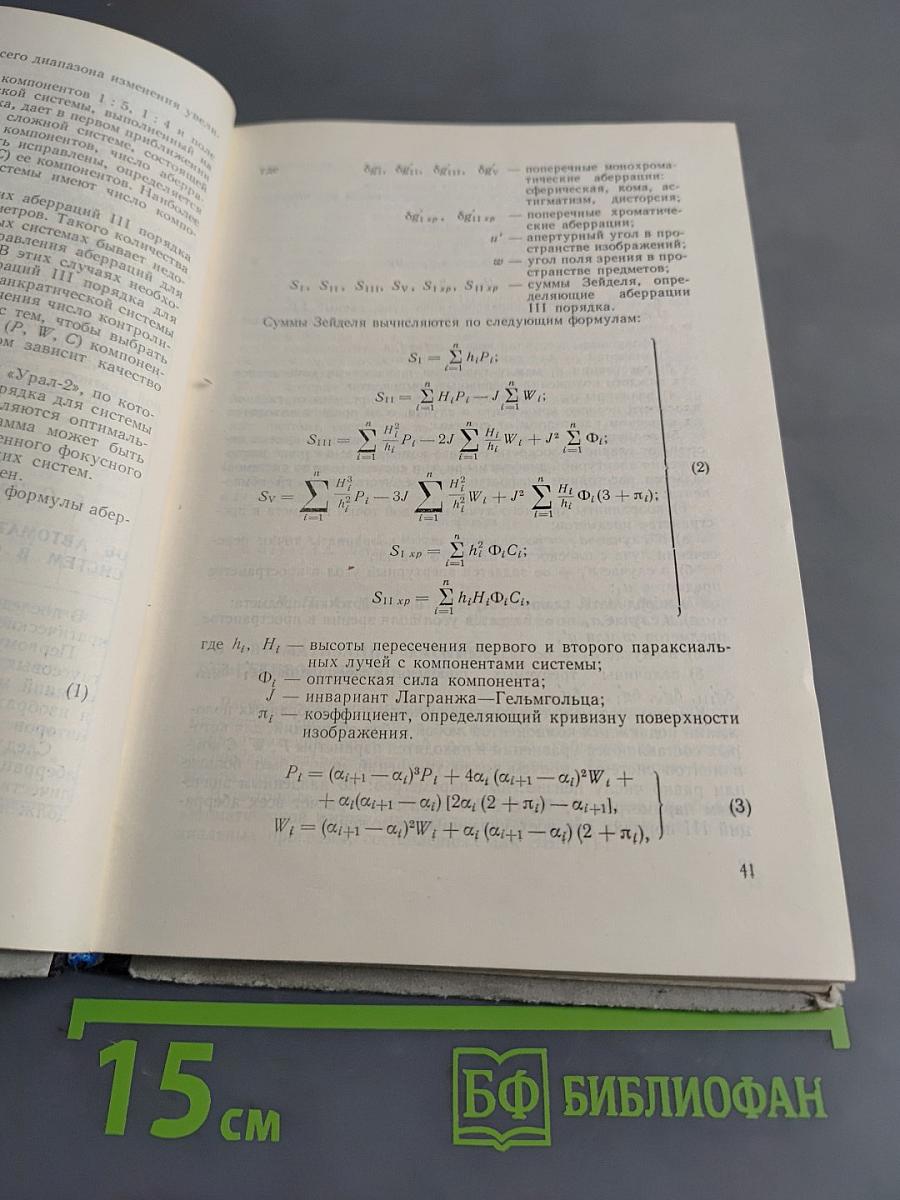 сего диапазона изменения увели-
компонентов 1 : 5, 1 : 4 и поле
ской системы, выполненный на
ка, дает в первом приближении
сложной системе, состоящей
компонентов, число аберра-
ь исправлены, определяется
С) ее компонентов. Наиболее
стемы имеют число компо-
их аберраций III порядка
метров. Такого количества
ых системах бывает недо-
равления аберраций для
В этих случаях необхо-
раций III порядка для
анкратической системы
чения число контроли-
с тем, чтобы выбрать
(P, W, C) компонен-
ом зависит качество
«Урал-2», по кото-
рядка для системы
ляются оптималь-
амма может быть
енного фокусного
щих систем.
ен.
формулы абер-
(1)
где δg′I, δg′II, δg′III, δg′V — поперечные монохрома-
тические аберрации:
сферическая, кома, ас-
тигматизм, дисторсия;
δg′I хр, δg′II хр — поперечные хроматиче-
ские аберрации;
u′ — апертурный угол в про-
странстве изображений;
w — угол поля зрения в про-
странстве предметов;
SI, SII, SIII, SV, SI хр, SII хр — суммы Зейделя, опре-
деляющие аберрации
III порядка.
Суммы Зейделя вычисляются по следующим формулам:
SI = Σⁿᵢ₌₁ hᵢPᵢ;
SII = Σⁿᵢ₌₁ HᵢPᵢ — J Σⁿᵢ₌₁ Wᵢ;
SIII = Σⁿᵢ₌₁ Hᵢ²/hᵢ Pᵢ — 2J Σⁿᵢ₌₁ Hᵢ/hᵢ Wᵢ + J² Σⁿᵢ₌₁ Φᵢ;
SV = Σⁿᵢ₌₁ Hᵢ³/hᵢ² Pᵢ — 3J Σⁿᵢ₌₁ Hᵢ²/hᵢ² Wᵢ + J² Σⁿᵢ₌₁ Hᵢ/hᵢ Φᵢ(3 + πᵢ); (2)
SI хр = Σⁿᵢ₌₁ hᵢ² ΦᵢCᵢ;
SII хр = Σⁿᵢ₌₁ hᵢHᵢΦᵢCᵢ,
где hᵢ, Hᵢ — высоты пересечения первого и второго параксиаль-
ных лучей с компонентами системы;
Φᵢ — оптическая сила компонента;
J — инвариант Лагранжа—Гельмгольца;
πᵢ — коэффициент, определяющий кривизну поверхности
изображения.
Pᵢ = (αᵢ₊₁ — αᵢ)³Pᵢ + 4αᵢ (αᵢ₊₁ — αᵢ)²Wᵢ +
+ αᵢ(αᵢ₊₁ — αᵢ) [2αᵢ (2 + πᵢ) — αᵢ₊₁], (3)
Wᵢ = (αᵢ₊₁ — αᵢ)²Wᵢ + αᵢ (αᵢ₊₁ — αᵢ) (2 + πᵢ),
41
15 см
БФ БИБЛИОФАН